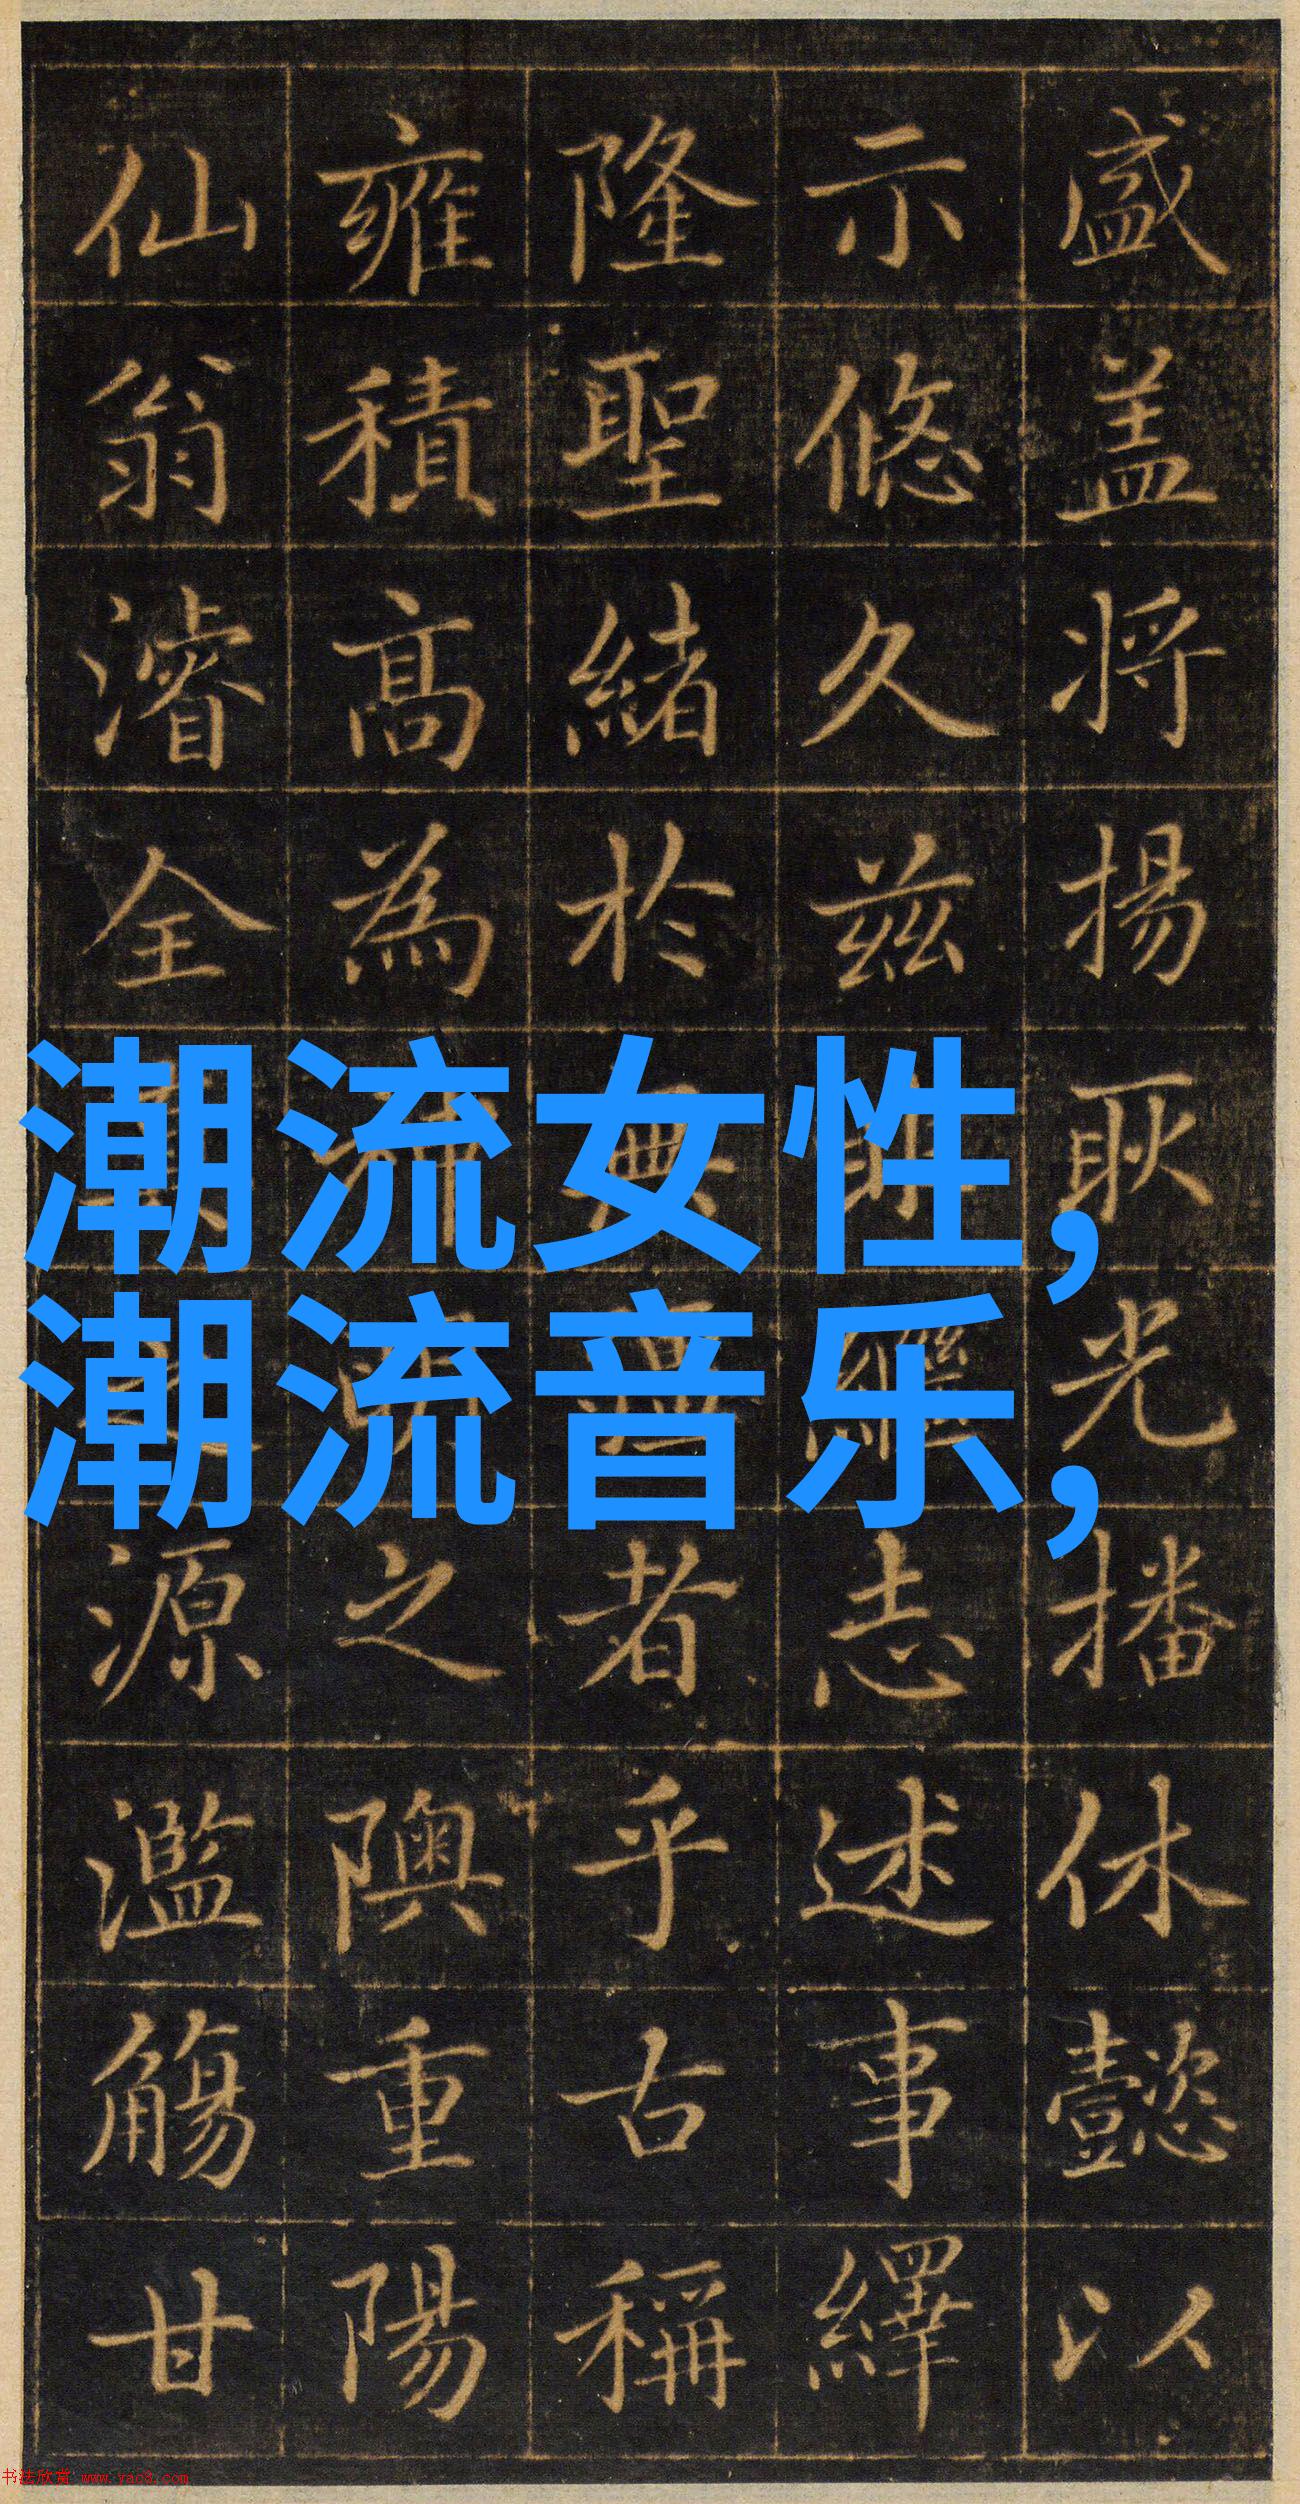 盛盖将揚耿光播休懿以
示悠久兹繼志述事繹
隆聖緒於無者乎古稱
雍積高為神明之隩重陽
仙翁濬全真之源濫觴甘
潮流女性,
潮流音乐,
书法欣赏 www.yac8.com